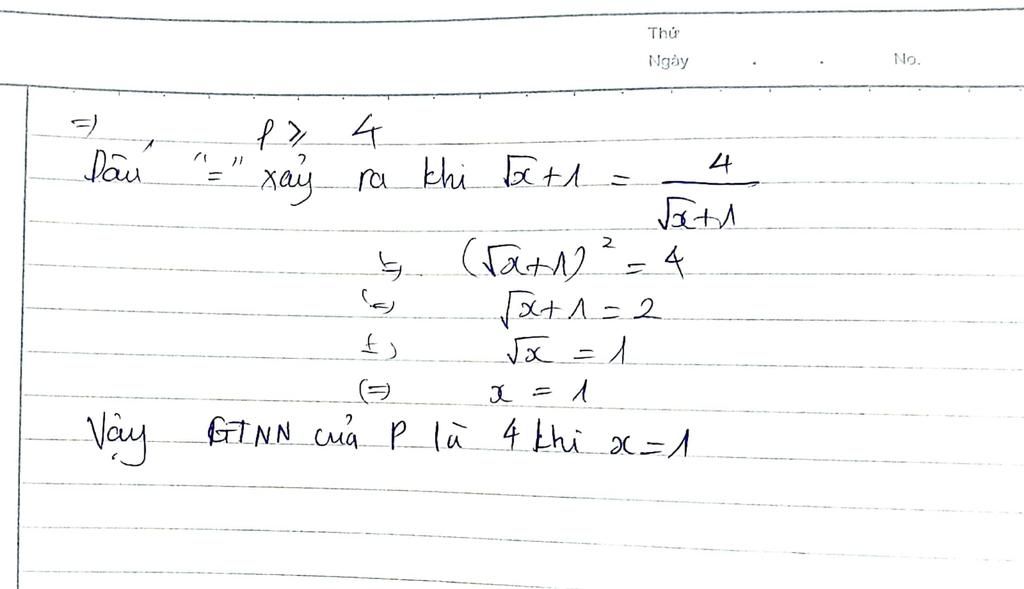 Thứ
Ngày . . No.
=> P ≥ 4
Dấu "=" xảy ra khi √x+1 = 4/(√x+1)
<=> (√x+1)² = 4
<=> √x+1 = 2
<=> √x = 1
<=> x = 1
Vậy GTNN của P là 4 khi x=1